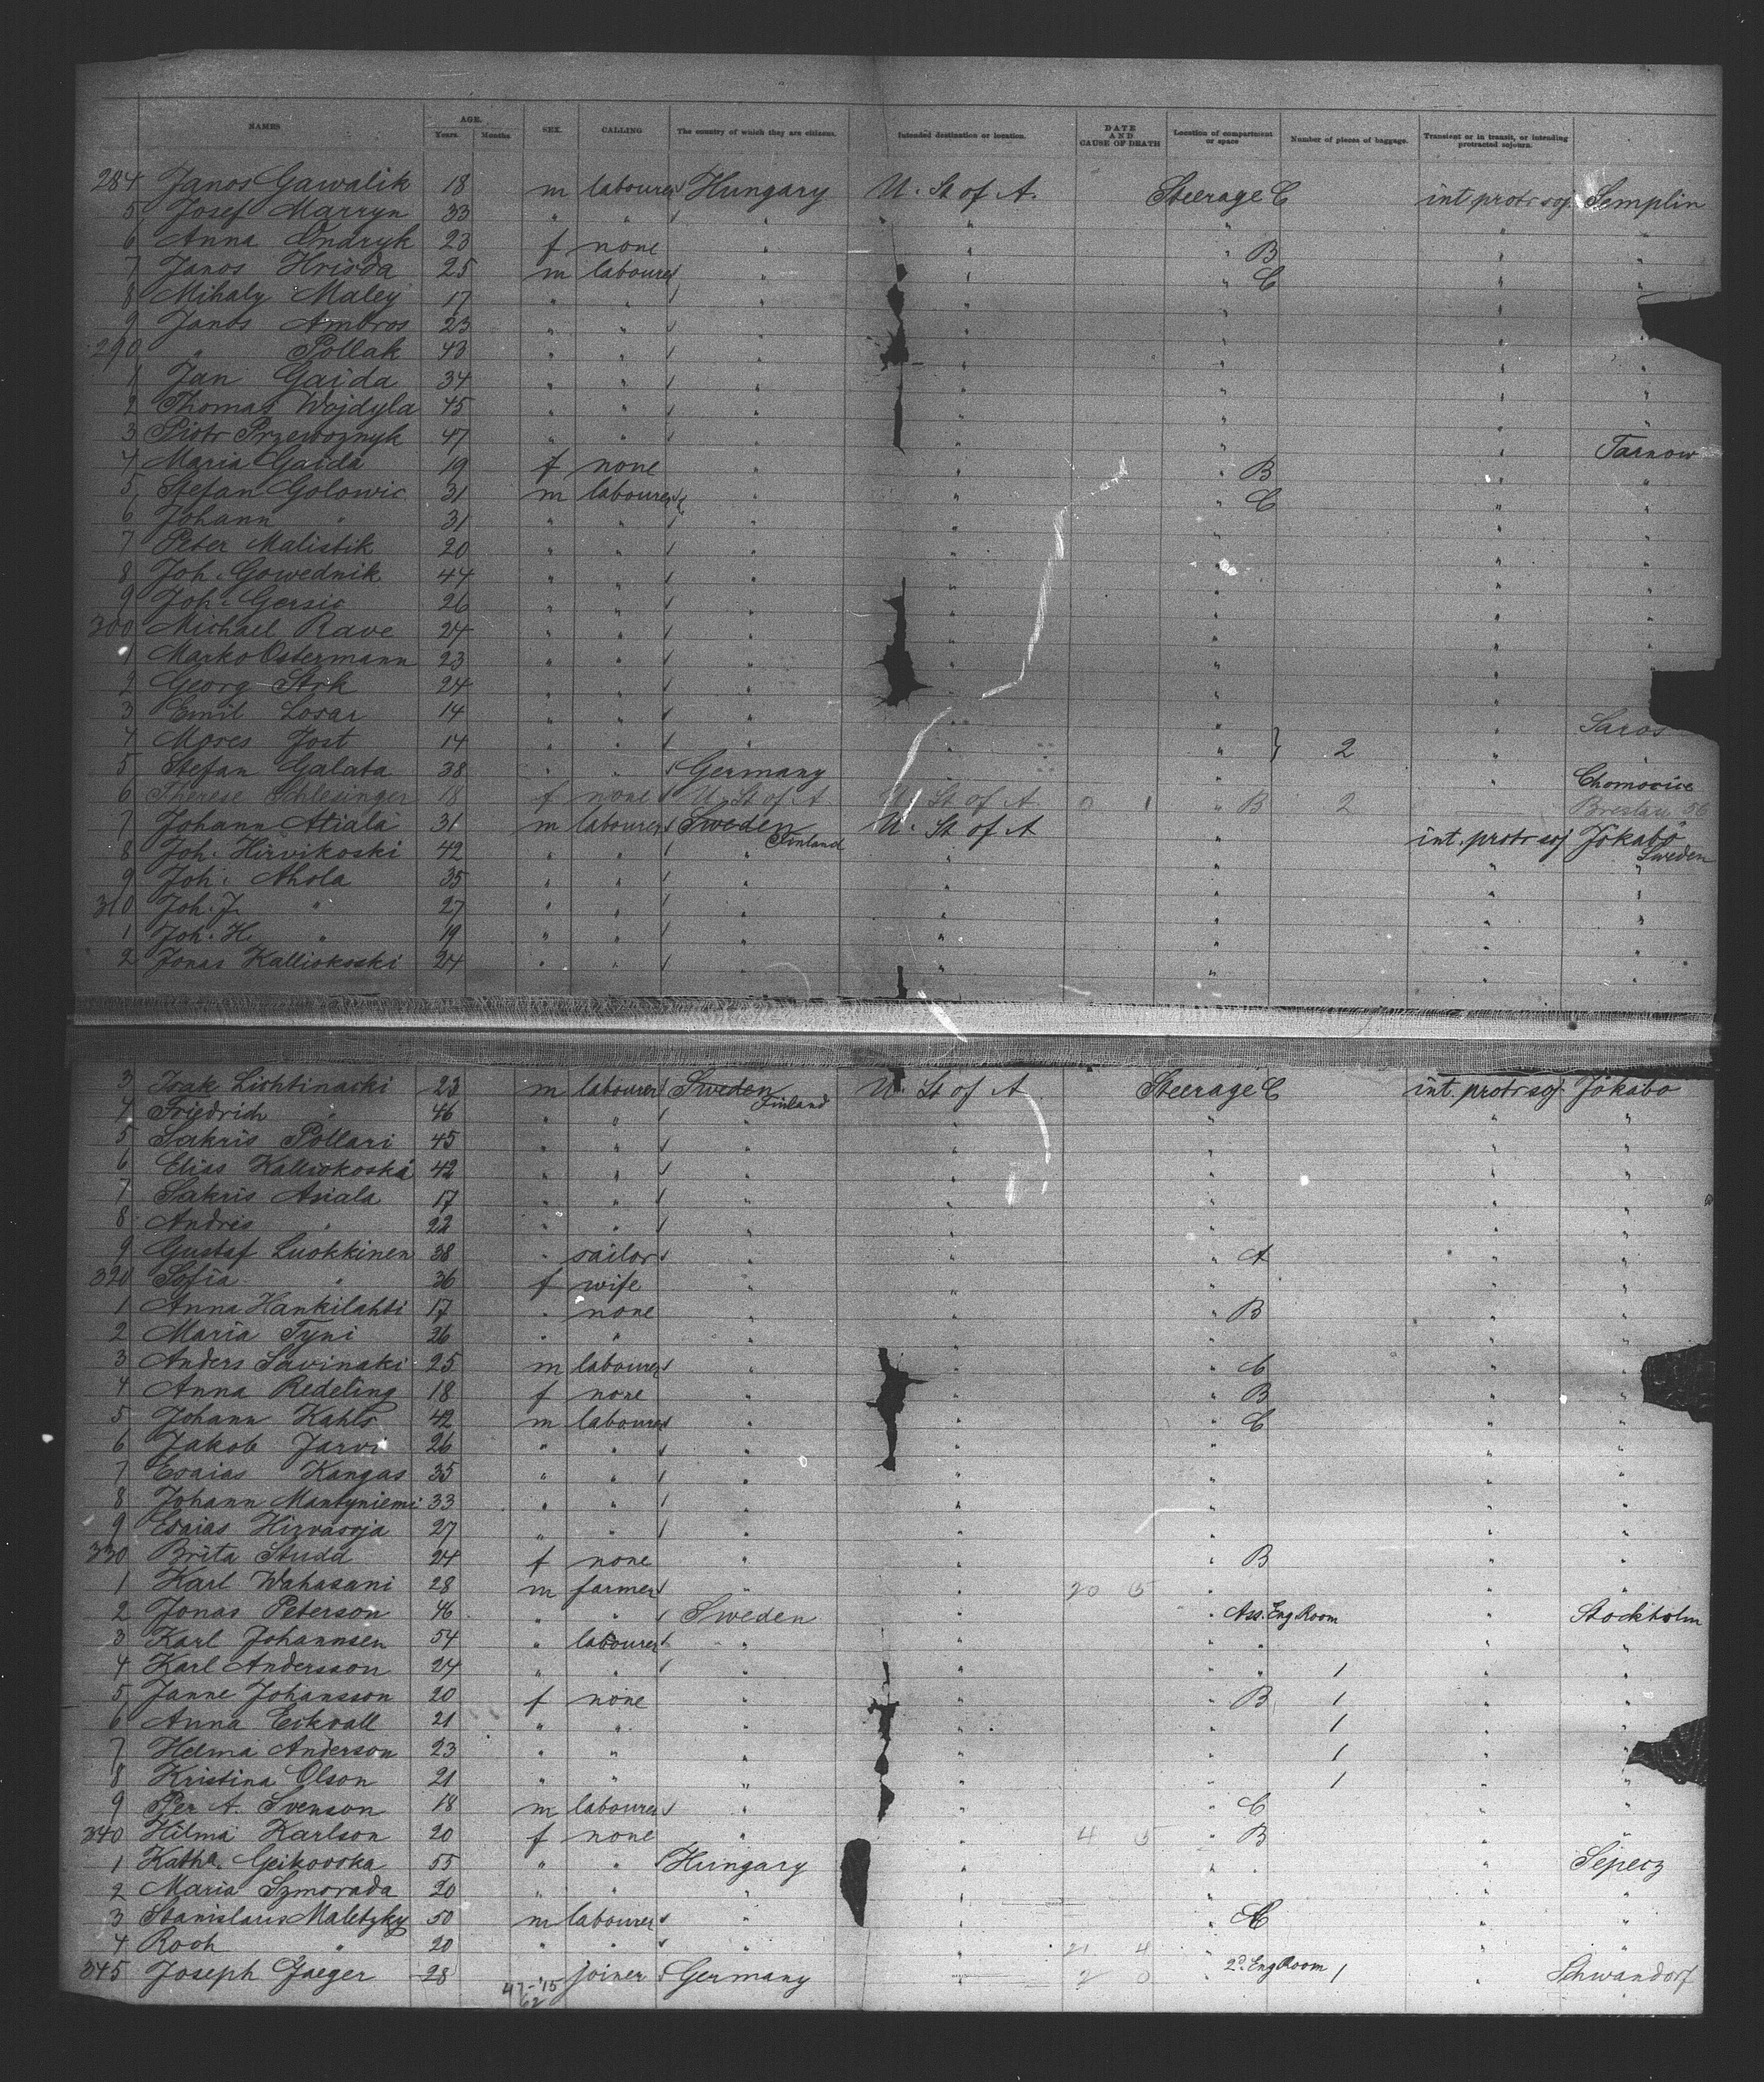 NAMES AGE. Years. Months. SEX. CALLING The country of which they are citizens. Intended destination or location. DATE AND CAUSE OF DEATH Location of compartment or space Number of pieces of baggage. Transient or in transit, or intending protracted sojourn.
284 Janos Gawalik 18 m labourer Hungary U. St of A. Steerage C int protr soj. Semplin
5 Josef Marryn 33 " " " " " " "
6 Anna Ondryk 23 f none " " " B " "
7 Janos Hrisda 25 m labourer " " " C " "
8 Mihaly Maley 17 " " " " " "
9 Janos Ambros 23 " " " " " "
290 " Pollak 43 " " " " " " "
1 Jan Gaida 34 " " " " " " "
2 Thomas Wojdyla 45 " " " " " " "
3 Piotr Przewoznyk 47 " " " " " " "
4 Maria Gaida 19 f none " " " B " Tarnow
5 Stefan Golowic 31 m labourer " " " C " "
6 Johann " 31 " " " " " " "
7 Peter Malistik 20 " " " " " " "
8 Joh. Gowednik 44 " " " " " " "
9 Joh. Gersic 26 " " " " " " "
300 Michael Rave 24 " " " " " " "
1 Marko Ostermann 23 " " " " " " "
2 Georg Strk 24 " " " " " "
3 Emil Losar 14 " " " " " " Saros
4 Mores Jost 14 " " " " " } 2 "
5 Stefan Galata 38 " " Germany " " " Chomovice
6 Therese Schlesinger 18 f none U. St of A U. St of A. 0 1 " B 2 Breslau 56
7 Johann Atiala 31 m labourer Sweden Finland U. St of A " int. protr soj Jökabo Sweden
8 Joh. Hirvikoski 42 " " " " " " "
9 Joh. Ahola 35 " " " " " " "
310 Joh. J. " 27 " " " " " " "
1 Joh. H. " 19 " " " " " " "
2 Jonas Kalliokoski 24 " " " " " " "
3 Isak Lishtinaski 23 m labourer Sweden Finland U. St of A Steerage C int. protr soj. Jökabo
4 Friedrich " 46 " " " " " " "
5 Sakris Pollari 45 " " " " " " "
6 Elias Kalliokoski 42 " " " " " " "
7 Sakris Asiala 17 " " " " " " "
8 Andres " 22 " " " " " " "
9 Gustaf Luokkinen 38 " sailor " " " A " "
320 Sofia " 36 f wife " " " " "
1 Anna Hankilahti 17 " none " " " B " "
2 Maria Tyni 26 " " " " " " "
3 Anders Savinaki 25 m labourer " " " C " "
4 Anna Redeling 18 f none " " " B " "
5 Johann Kahls 42 m labourer " " " C " "
6 Jakob Jarvi 26 " " " " " " "
7 Esaias Kangas 35 " " " " " " "
8 Johann Mantyniemi 33 " " " " " " "
9 Esaias Hirvasoja 27 " " " " " " "
330 Brita Studd 24 f none " " " B " "
1 Karl Wahasani 28 m farmer " " 20 5 " " "
2 Jonas Peterson 46 " " Sweden " " Ass. Eng Room " Stockholm
3 Karl Johannsen 54 " labourer " " " " " "
4 Karl Andersson 24 " " " " " " 1 " "
5 Janne Johansson 20 f none " " " B 1 " "
6 Anna Eckvall 21 " " " " " 1 " "
7 Helma Anderson 23 " " " " " 1 " "
8 Kristina Olson 21 " " " " " 1 " "
9 Per A. Svenson 18 m labourer " " " C " "
340 Hilma Karlson 20 f none " " 4 5 " B " "
1 Katha. Geikovska 55 " " Hungary " " " " Seperz
2 Maria Szmorada 20 " " " " " " "
3 Stanislaus Maletzky 50 m labourer " " " C " "
4 Roch " 20 " " " " 21 4 " " "
345 Joseph Jaeger 28 joiner Germany " 2 0 2d. Eng Room 1 " Schwandorf